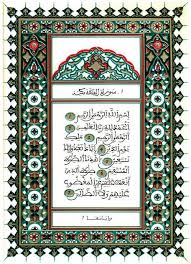 ١ سورة الفاتحة مكية
بسم الله الرحمن الرحيم
الحمد لله رب العالمين
الرحمن الرحيم ملك يوم الدين
إياك نعبد وإياك
نستعين اهدنا الصراط
المستقيم صراط الذين
أنعمت عليهم غير المغضوب
عليهم ولا الضالين